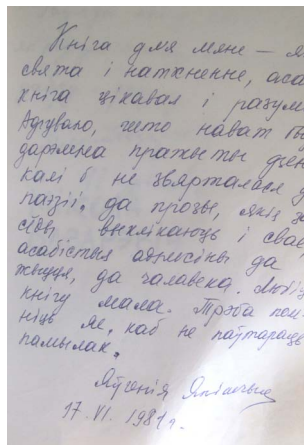 Кніга для мяне —
свята і натхненне, аса
кніга цікавая і разум
Адчуваю, што нават бы
дарэмна пражыты дзен
калі б не звярталася д
паэзіі, да прозы, якія за
выклікаюць і свае
асабістыя адносіны да
да чалавека. Любі
кнігу мала. Трэба пом
ніць яе, каб не паўтараць
памылак.
Яўгенія Янішчыц
17. VI. 1981 г.